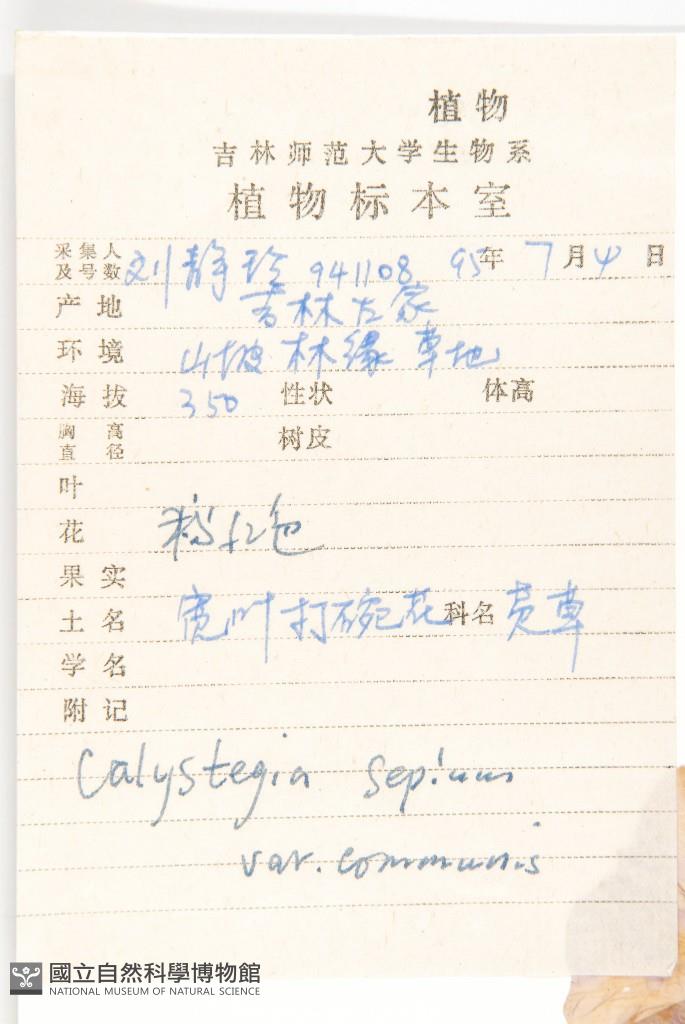 植物
吉林师范大学生物系
植物标本室
采集人及号数 刘静玲 941108 95年 7月4日
产地 吉林左家
环境 山坡林缘草地
海拔 350 性状 体高
胸高直径 树皮
叶
花 粉红色
果实
土名 宽叶打碗花 科名
学名
附记
Calystegia sepium
var. communis
國立自然科學博物館
NATIONAL MUSEUM OF NATURAL SCIENCE